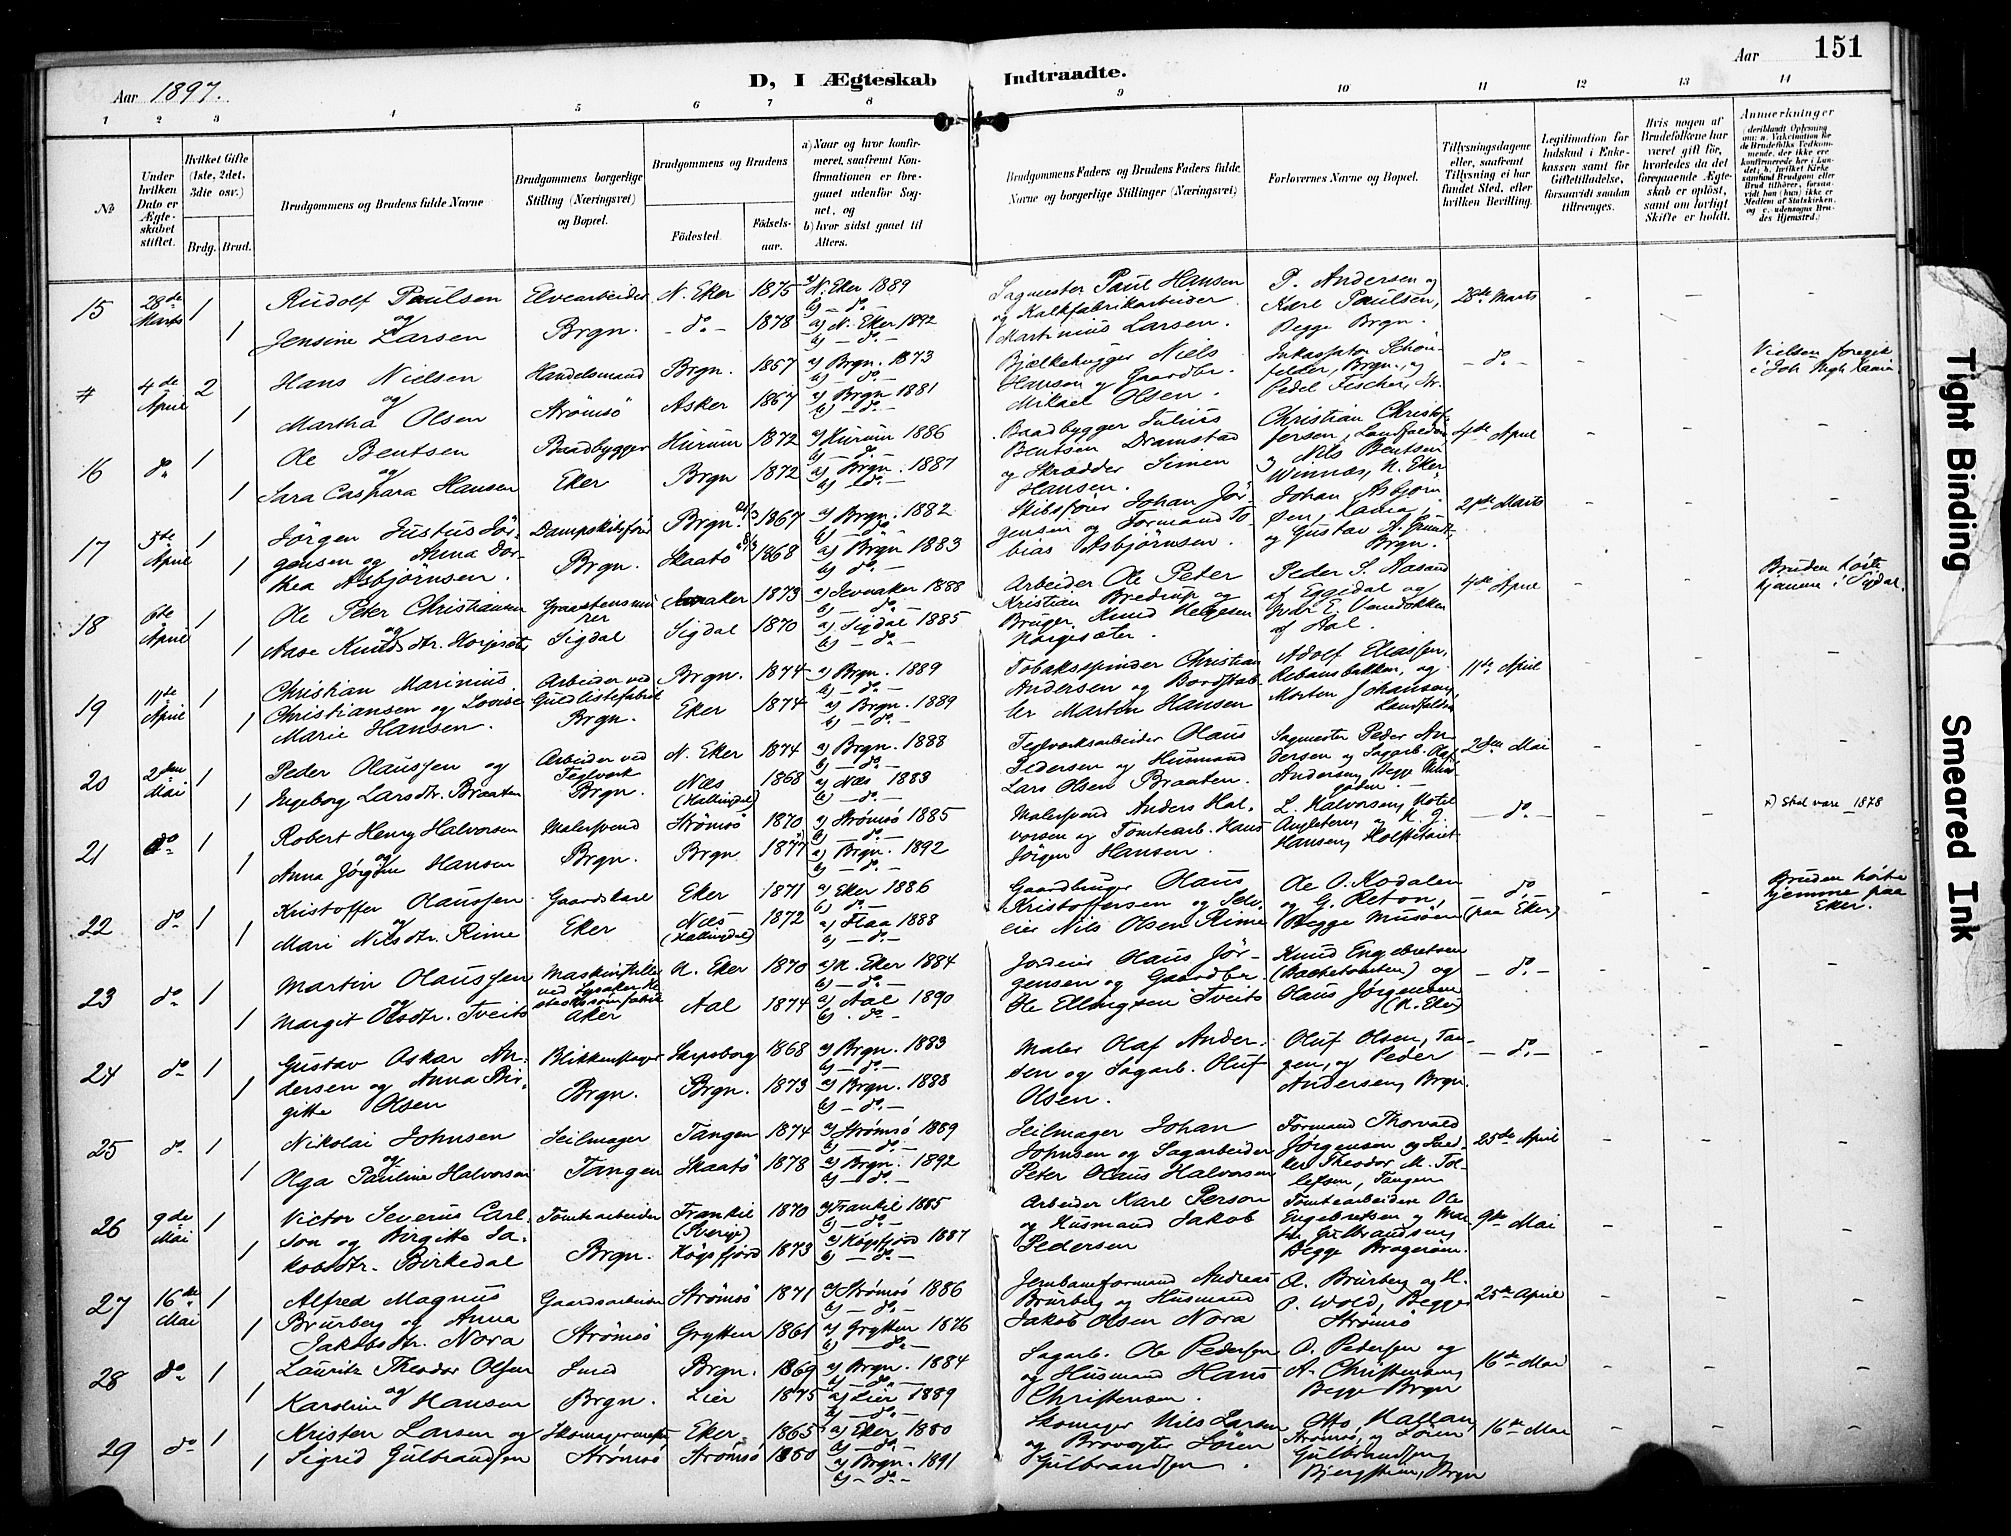 Aar 1897.
D, I Ægteskab Indtraadte.
Aar 151
1 2 3 4 5 6 7 8 9 10 11 12 13 14
No
Under hvilken Dato er Ægteskabet stiftet.
Hvilket Gifte (1ste, 2det, 3die osv.)
Brdg. Brud.
Brudgommens og Brudens fulde Navne
Brudgommens borgerlige Stilling (Næringsvei) og Bopæl.
Brudgommens og Brudens
Födested.
Födselsaar.
a) Naar og hvor konfirmeret, saafremt Konfirmationen er foregaaet udenfor Sognet, og
b) hvor sidst gaaet til Alters.
Brudgommens Faders og Brudens Faders fulde Navne og borgerlige Stillinger (Næringsvei)
Forlovernes Navne og Bopæl.
Tillysningsdagene eller, saafremt Tillysning ei har fundet Sted, efter hvilken Bevilling.
Legitimation for Indskud i Enkekassen samt for Giftetilladelse, forsaavidt saadan tiltrænges.
Hvis nogen af Brudefolkene har været gift för, hvorledes da det foregaaende Ægteskab er oplöst, samt om lovligt Skifte er holdt.
Anmærkninger
15 28de Marts 1 Rudolf Paulsen Elvearbeider N. Eker 1875 a) N. Eker 1889 b) – do. –
og
1 Jensine Larsen Brgn. – do. – 1878 a) N. Eker 1892 b) – do. –
Sagmester Paul Hansen
og Kalkfabrikarbeider
Martinius Larsen.
P. Andersen og
Karl Paulsen,
Begge Brgn.
28de Marts
# 4de April 2 Hans Nielsen Handelsmand Brgn. 1857 a) Brgn. 1873 b) – do. –
og
1 Martha Olsen Strömsö Asker 1867 a) Brgn 1881 b) – do. –
Bjælkehugger Niels
Hanson og Gaardbr.
Mikael Olsen.
– do. –
16 do. 1 Ole Bentsen Baadbygger Hurum 1872 a) Hurum 1886 b) – do. –
og
1 Sara Caspara Hansen Eker Brgn 1872 a) Brgn. 1887 b) – do. –
Baadbygger Julius
Bentsen Dramstad
og Skrædder Simen
Hansen.
Christian Christof-
fersen, Landfalden
og Nils Bentsen
Winnæs, N. Eker
4de April
17 5te April 1 Jörgen Justus Jör-
1 gensen og Anna Dor-
thea Asbjörnsen.
Dampskibsförer Brgn. 1867 a) Brgn. 1882 b) do.
Brgn. Skaatö 1868 a) Brgn 1883 b) – do. –
Skibsförer Johan Jör-
gensen og Formand To-
bias Asbjörnsen.
Johan Asbjörn-
sen,
og Gustav A.
Brgn.
21de Marts
18 6te April 1 Ole Peter Christiansen 1873 1888 b) – do. –
og
1 Aase Knudsdtr. Sigdal Sigdal 1870 a) Sigdal 1885 b) – do. –
Arbeider Ole Peter
Kristian Bredrup og
Bruger Knud Helgesen
Peder S. Aasand
af Eggedal og
af Aal.
4de April
Bruden hörte
hjemme i Sigdal.
19 11te April 1 Christian Marinius
1 Christiansen og Lovise
Marie Hansen.
Arbeider ved
Guldlistefabrik
Brgn.
Brgn. 1874 a) Brgn. 1889 b) – do. –
Eker 1874 a) Brgn. 1889 b) – do. –
Tobaksspinder Christian
Andersen og Bordstab-
ler Martin Hansen
Adolf Eliassen,
Rebansbakken, og
Morten Johansen,
Landfalden
11te April
20 2den Mai 1 Peder Olaussen og
1 Ingeborg Larsdtr. Braaten
Arbeider ved
Teglverk
Brgn.
N. Eker 1874 a) Brgn. 1888 b) – do. –
Næs (Hallingdal) 1868 a) Næs 1883 b) – do. –
Teglverksarbeider Olaus
Pedersen og Husmand
Lars Olsen Braaten.
Sagmester Peder An-
dersen og Sagarb. Olaf
Andersen, Begge
2den Mai
21 do. 1 Robert Henry Halvorsen Malersvend Strömsö 1870 a) Strömsö 1885 b) – do. –
og
1 Anna Jörgine Hansen Brgn. Brgn 1877 a) Brgn. 1892 b) – do. –
Malersvend Anders Hal-
vorsen og Tomtearb. Hans
Jörgen Hansen.
L. Halvorsen, Hotel
Angleterre, og
Hansen,
– do. –
x) Skal være 1878
22 do. 1 Kristoffer Olaussen Gaardskarl Eker 1871 a) Eker 1886 b) – do. –
og
1 Mari Nilsdtr. Rime Eker Næs (Hallingdal) 1872 a) Flaa 1888 b) – do. –
Gaardbruger Olaus
Kristoffersen og Selv-
eier Nils Olsen Rime
Ole O. Kodalen
og G. Reton,
Begge
– do. –
(paa Eker)
Bruden hörte
hjemme paa
Eker.
23 do. 1 Martin Olaussen
og
1 Margit Olsdtr. Tveito
Aker
N. Eker 1870 a) N. Eker 1884 b) – do. –
Aal 1874 a) Aal 1890 b) – do. –
Jordeier Olaus Jör-
gensen og Gaardbr.
Ole Ellingsen Tveito
Knud Engebretsen
og
Olaus Jörgensen
(N. Eker)
– do. –
24 do. 1 Gustav Oskar An-
1 dersen og Anna Bir-
gitte Olsen
Blikkenslager Sarpsborg 1868 a) Brgn. 1883 b) – do. –
Brgn. Brgn. 1873 a) Brgn. 1888 b) – do. –
Maler Olaf Ander-
sen og Sagarb. Oluf
Olsen.
Oluf Olsen, Tan-
gen, og Peder
Andersen, Brgn.
– do. –
25 do. 1 Nikolai Johnsen Seilmager Tangen 1874 a) Strömsö 1889 b) – do. –
og
1 Olga Pauline Halvorsen Tangen Skaatö 1878 a) Brgn. 1892 b) – do. –
Seilmager Johan
Johnsen og Sagarbeider
Peter Olaus Halvorsen
Formand Thorvald
Jörgensen og
Theodor M. Tol-
lefsen, Tangen
25de April
26 9de Mai 1 Victor Severus Carl-
son og Birgitte Ja-
1 kobsdtr. Birkedal
Tomtearbeider Frankil (Sverige) 1870 a) Frankil 1885 b) – do. –
Brgn. Högsfjord 1873 a) Högsfjord 1887 b) – do. –
Arbeider Karl Person
og Husmand Jakob
Pedersen
Tomtearbeider Ole
Engebretsen og
Gulbrandsen,
Begge Bragernæs.
9de Mai
27 16de Mai 1 Alfred Magnus
1 Brurberg og Anna
Jakobsdtr. Nora
Gaardsarbeider Strömsö 1871 a) Strömsö 1886 b) – do. –
Strömsö Grytten 1861 a) Grytten 1876 b) – do. –
Jernbaneformand Andreas
Brurberg og Husmand
Jakob Olsen Nora
A. Brurberg og H.
P. Wold, Begge
Strömsö
25de April
28 do. 1 Lauritz Theodor Olsen Smed Brgn. 1869 a) Brgn. 1884 b) – do. –
og
1 Karoline Hansen Brgn. Lier 1875 a) Lier 1889 b) – do. –
Sagarb. Ole Pedersen
og Husmand Hans
Christensen.
O. Pedersen og
A. Christensen,
Begge Brgn
16de Mai
29 do. 1 Kristen Larsen og Skomagermester Eker 1865 a) Eker 1880 b) – do. –
1 Sigrid Gulbrandsen Strömsö Strömsö a) Brgn. 1891 b) – do. –
Skomager Nils Larsen
og Brovogter Sören
Gulbrandsen.
Otto Hallan,
Strömsö, og Sören
Gulbrandsen,
Brgn
16de Mai
Tight Binding
Smeared Ink